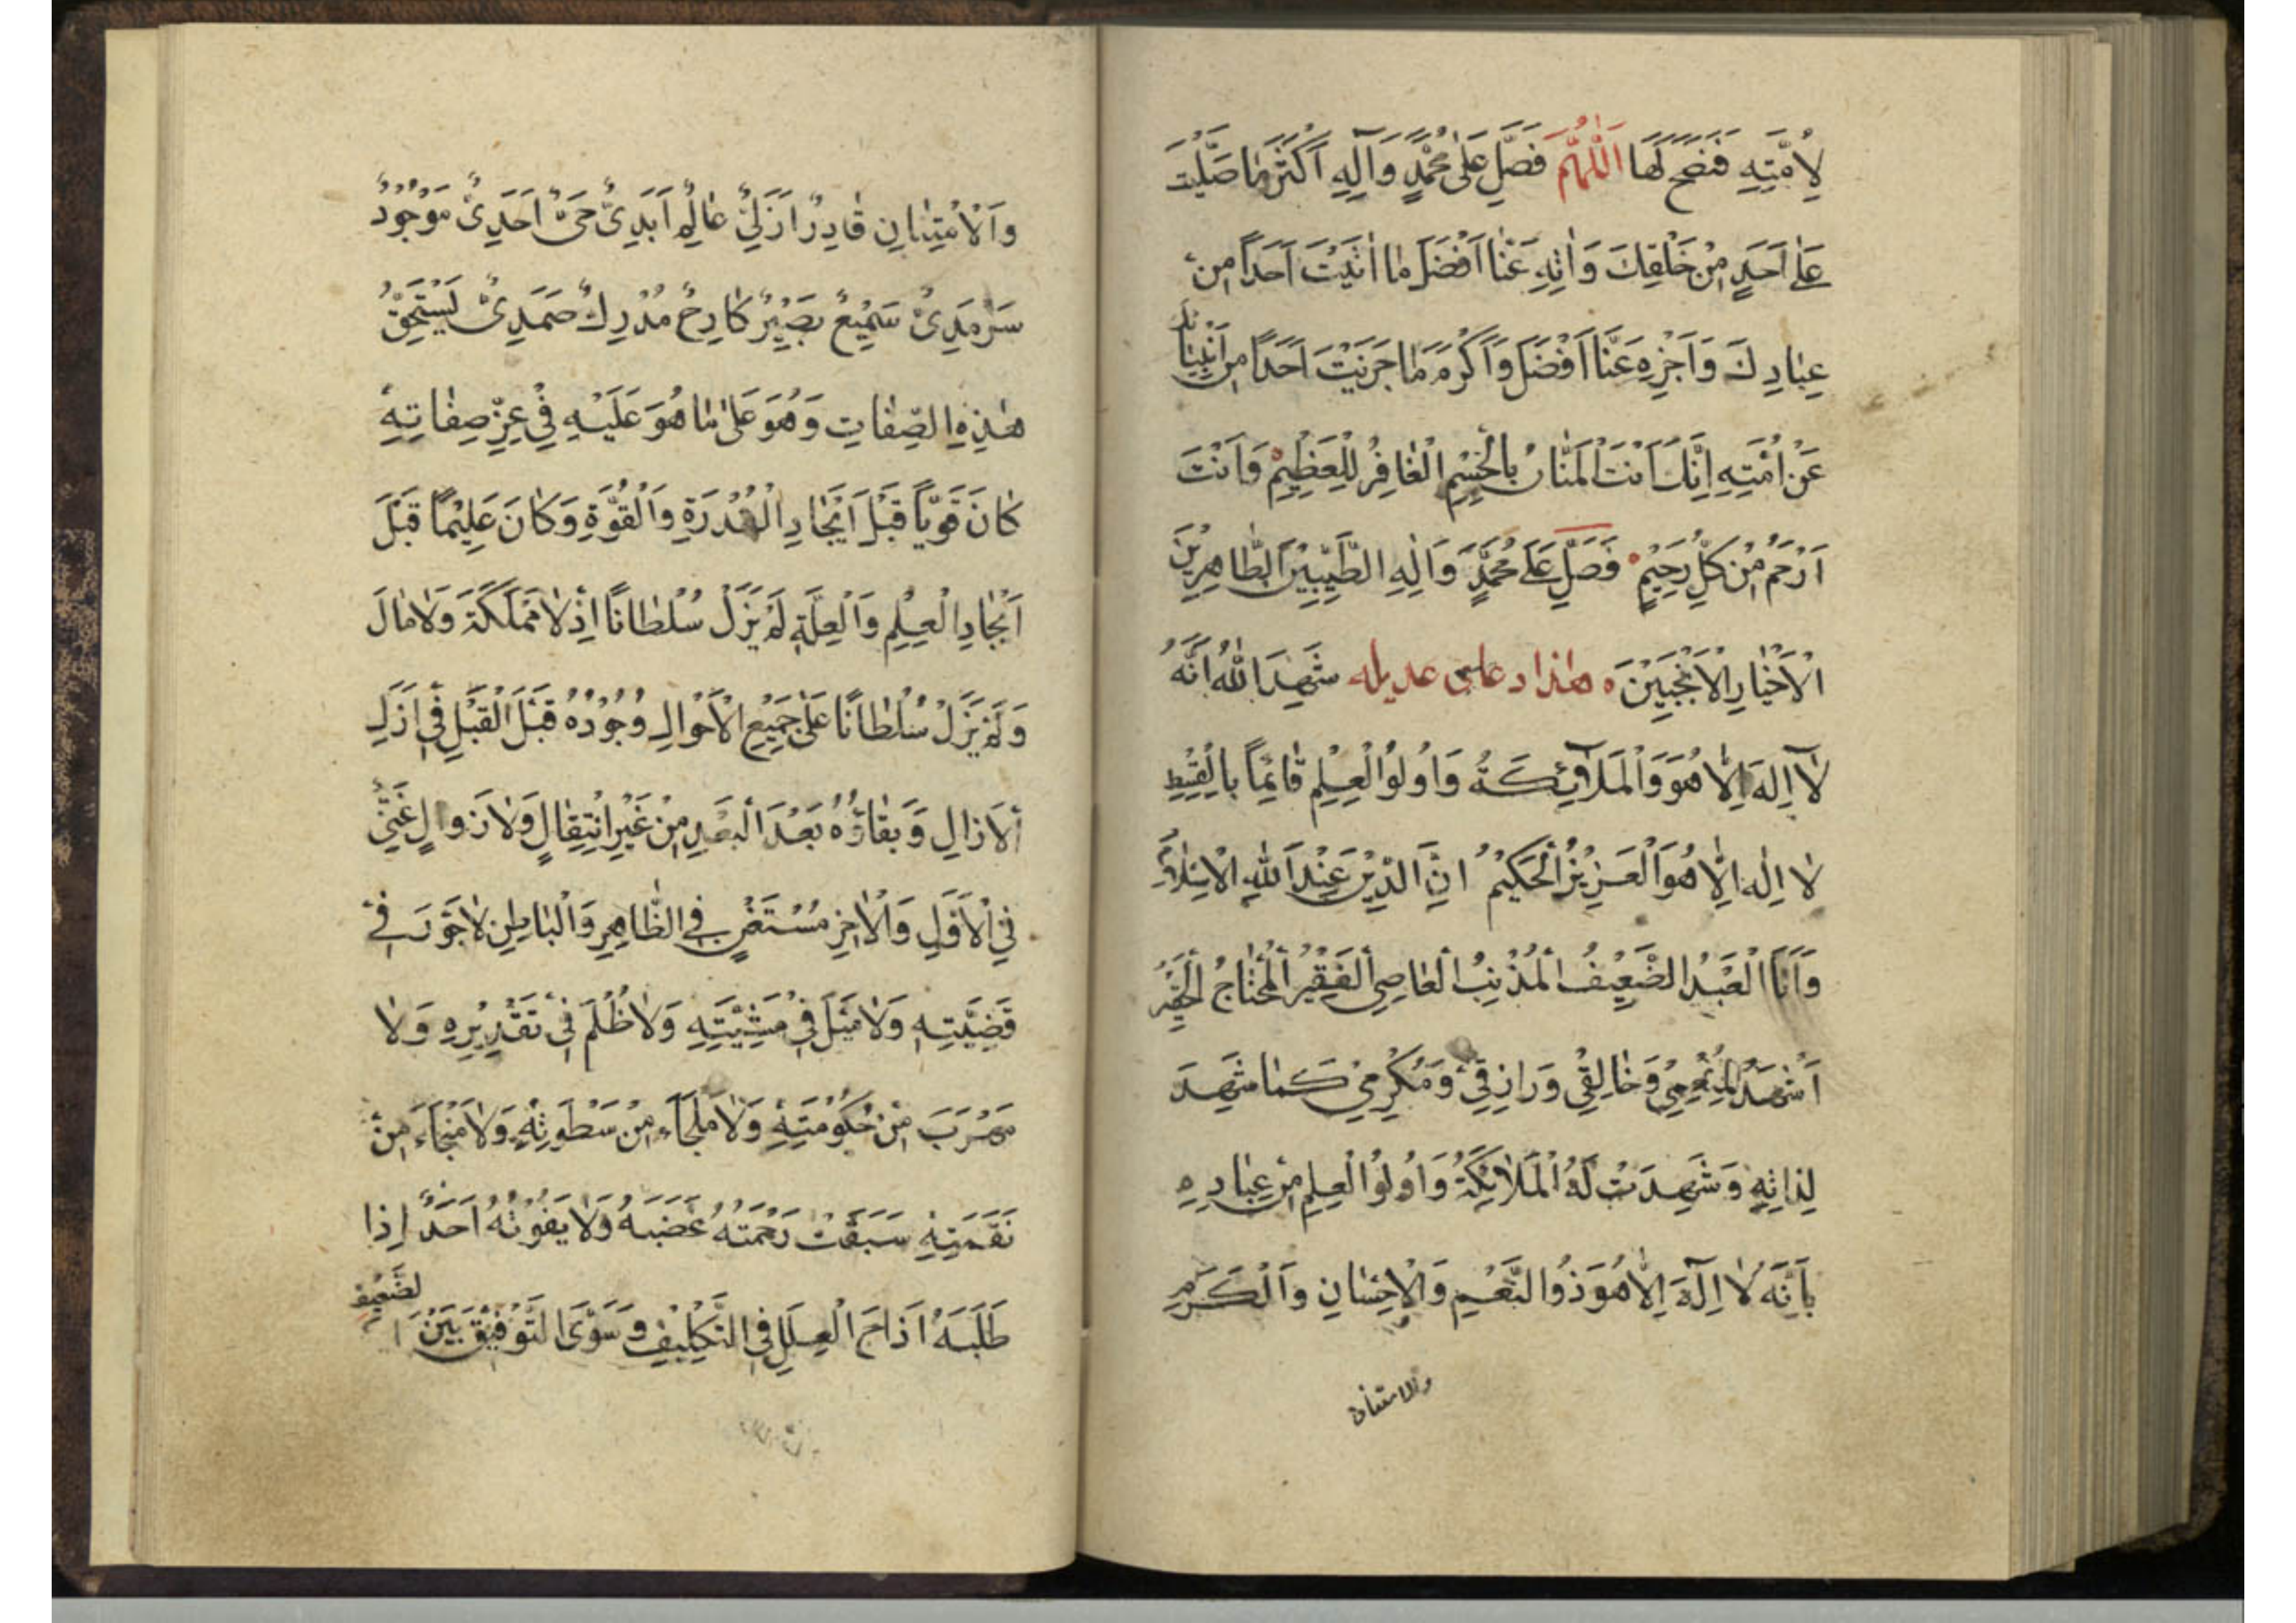 لِاُمَّتِهِ فَنَصَحَ لَهَا اَللّٰهُمَّ فَصَلِّ عَلٰى مُحَمَّدٍ وَآلِهِ اَكْثَرَ مَا صَلَّيْتَ
عَلٰى اَحَدٍ مِنْ خَلْقِكَ وَاٰتِهِ عَنَّا اَفْضَلَ مَا اٰتَيْتَ اَحَداً مِنْ
عِبَادِكَ وَاَجْزِهِ عَنَّا اَفْضَلَ وَاَكْرَمَ مَا جَزَيْتَ اَحَدًا مِنْ اَنْبِيَائِكَ
عَنْ اُمَّتِهِ اِنَّكَ اَنْتَ الْمَنَّانُ بِالْجَسِيمِ الْغَافِرُ لِلْعَظِيْمِ وَاَنْتَ
اَرْحَمُ مِنْ كُلِّ رَحِيْمٍ فَصَلِّ عَلٰى مُحَمَّدٍ وَاٰلِهِ الطَّيِّبِيْنَ الطَّاهِرِيْنَ
الْاَخْيَارِ الْاَنْجَبِيْنَ هٰذا دعاى عديله شَهِدَ اللّٰهُ اَنَّهُ
لَا اِلٰهَ اِلَّا هُوَ وَالْمَلَآئِكَةُ وَاُولُوا الْعِلْمِ قَائِمًا بِالْقِسْطِ
لَا اِلٰهَ اِلَّا هُوَ الْعَزِيْزُ الْحَكِيْمُ اِنَّ الدِّيْنَ عِنْدَ اللّٰهِ الْاِسْلَامُ
وَاَنَا الْعَبْدُ الضَّعِيْفُ الْمُذْنِبُ الْعَاصِي الْفَقِيْرُ الْمُحْتَاجُ الْحَقِيْرُ
اَشْهَدُ لِمُنْعِمِي وَخَالِقِي وَرَازِقِي وَمُكْرِمِي كَمَا شَهِدَ
لِذَاتِهِ وَشَهِدَتْ لَهُ الْمَلَائِكَةُ وَاُولُوا الْعِلْمِ مِنْ عِبَادِهِ
بِاَنَّهُ لَا اِلٰهَ اِلَّا هُوَ ذُو النِّعَمِ وَالْاِحْسَانِ وَالْكَرَمِ
والامتنان
وَالْاُمْتِنَانِ قَادِرٌ اَزَلِيٌّ عَالِمٌ اَبَدِىٌّ حَىٌّ اَحَدِىٌّ مَوْجُوْدٌ
سَرْمَدِىٌّ سَمِيْعٌ بَصِيْرٌ كَارِهٌ مُدْرِكٌ صَمَدِىٌّ يَسْتَحِقُّ
هٰذِهِ الصِّفَاتِ وَهُوَ عَلٰى مَا هُوَ عَلَيْهِ فِي عِزِّ صِفَاتِهِ
كَانَ قَوِيّاً قَبْلَ اِيْجَادِ الْقُدْرَةِ وَالْقُوَّةِ وَكَانَ عَلِيْمًا قَبْلَ
اِيْجَادِ الْعِلْمِ وَالْعِلَّةِ لَمْ يَزَلْ سُلْطَانًا اِذْ لَا مَمْلَكَةَ وَلَا مَالَ
وَلَمْ يَزَلْ سُلْطَانًا عَلٰى جَمِيْعِ الْاَحْوَالِ وُجُوْدُهُ قَبْلَ الْقَبْلِ فِي اَزَلِ
الْاَزَالِ وَبَقَاؤُهُ بَعْدَ الْبَعْدِ مِنْ غَيْرِ انْتِقَالٍ وَلَا زَوَالٍ غَنِيٌّ
فِي الْاَوَّلِ وَالْاٰخِرِ مُسْتَغْنٍ فِي الظَّاهِرِ وَالْبَاطِنِ لَا جَوْرَ فِي
قَضِيَّتِهِ وَلَا مَيْلَ فِي مَشِيَّتِهِ وَلَا ظُلْمَ فِي تَقْدِيْرِهِ وَلَا
مَهْرَبَ مِنْ حُكُوْمَتِهِ وَلَا مَلْجَاءَ مِنْ سَطَوَتِهِ وَلَا مَنْجَاءَ مِنْ
نَقَمَتِهِ سَبَقَتْ رَحْمَتُهُ غَضَبَهُ وَلَا يَفُوْتُهُ اَحَدٌ اِذَا
طَلَبَهُ اَزَاحَ الْعِلَلِ فِي التَّكْلِيْفِ وَسَوَّى التَّوْفِيْقَ بَيْنَ الضَّعِيْفِ